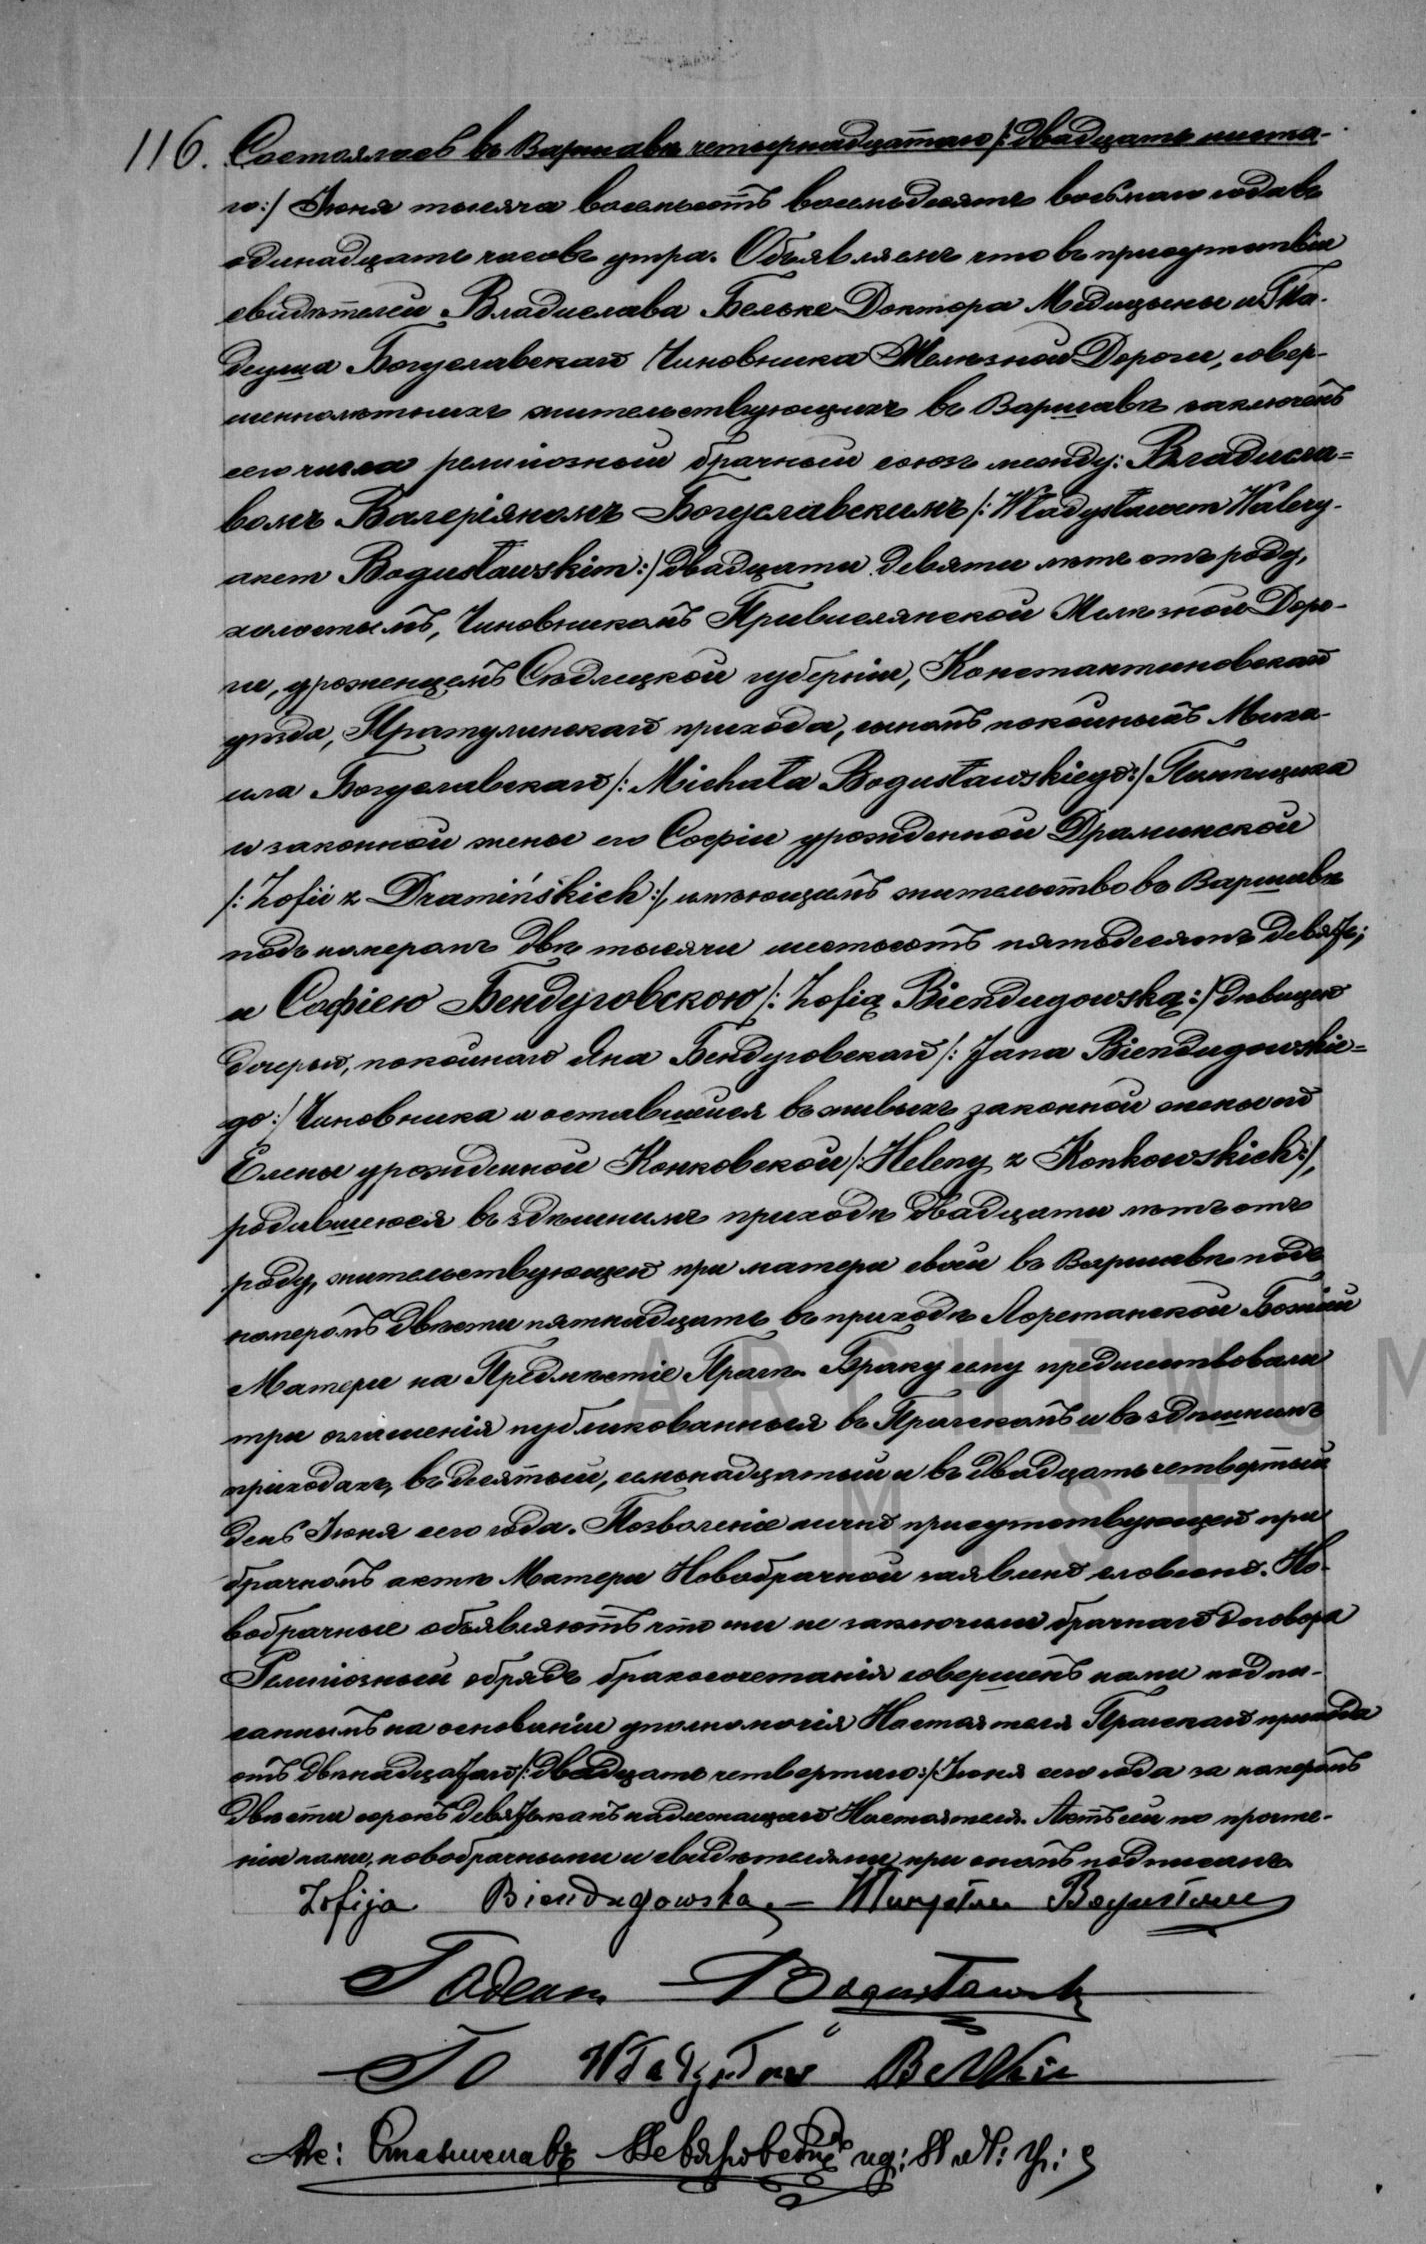 116. Состоялось въ Варшавѣ четырнадцатаго /:двадцать шеста-
го:/ Іюня тысяча восемьсотъ восемьдесятъ восьмаго года въ
одинадцать часовъ утра. Объявляемъ что въ присутствіи
свидѣтелей Владислава Бельке Доктора Медицыны и Фа-
деуша Богуславскаго Чиновника Желѣзной Дороги, совер-
шеннолѣтныхъ жительствующихъ въ Варшавѣ заключенъ
сего числа религіозный брачный союзъ между: Владисла-
вомъ Валеріяномъ Богуславскимъ /:Władysławem Walery-
anem Bogusławskim:/ двадцати девяти лѣтъ отъ роду,
холостымъ, Чиновникомъ Привислянской Желѣзной Доро-
ги, уроженцемъ Сѣдлецкой губерніи, Константиновскаго
уѣзда, Пратулинскаго прихода, сыномъ покойныхъ Миха-
ила Богуславскаго /:Michała Bogusławskiego:/ Помѣщика
и законной жены его Софіи урожденной Драминской
/:Zofii z Dramińskich:/, имѣющимъ жительство въ Варшавѣ
подъ номеромъ двѣ тысячи шестьсотъ пятьдесятъ девять;
и Софіею Бендуговскою /:Zofią Biendugowską:/ дѣвицею
дочерью, покойнаго Яна Бендуговскаго /:Jana Biendugowskie-
go:/ Чиновника и оставшейся въ живыхъ законной жены его
Елены урожденной Конковской /:Heleny z Konkowskich:/,
родившеюся въ здѣшнимъ приходѣ двадцати лѣтъ отъ
роду, жительствующей при матери своей въ Варшавѣ подъ
номеромъ двѣсти пятнадцать въ приходѣ Лоретанской Божіей
Матери на Предмѣстіе Прага. Браку сему предшествовали
три оглашенія публикованныя въ Пражскомъ и въ здѣшнимъ
приходахъ, въ десятый, семнадцатый и въ двадцать четвертый
день Іюня сего года. Позволеніе лично присутствующей при
брачномъ актѣ Матери Новобрачной заявлено словесно. Но-
вобрачные объявляютъ что они не заключили брачнаго договора
Религіозный обрядъ бракосочетанія совершенъ нами подпи-
саннымъ на основаніи уполномочія Настоятеля Пражскаго прихода
отъ двѣнадцатаго /:двадцать четвертаго:/ Іюня сего года за номеромъ
двѣсти сорокъ девять какъ надлежащаго Настоятеля. Актъ сей по прочте-
ніи нами, новобрачными и свидѣтелями при ономъ подписанъ.
Zofija Biendugowska. — Bogusławski
Tadeusz Bogusławski
Władysław Belke
Кс: Станиславъ